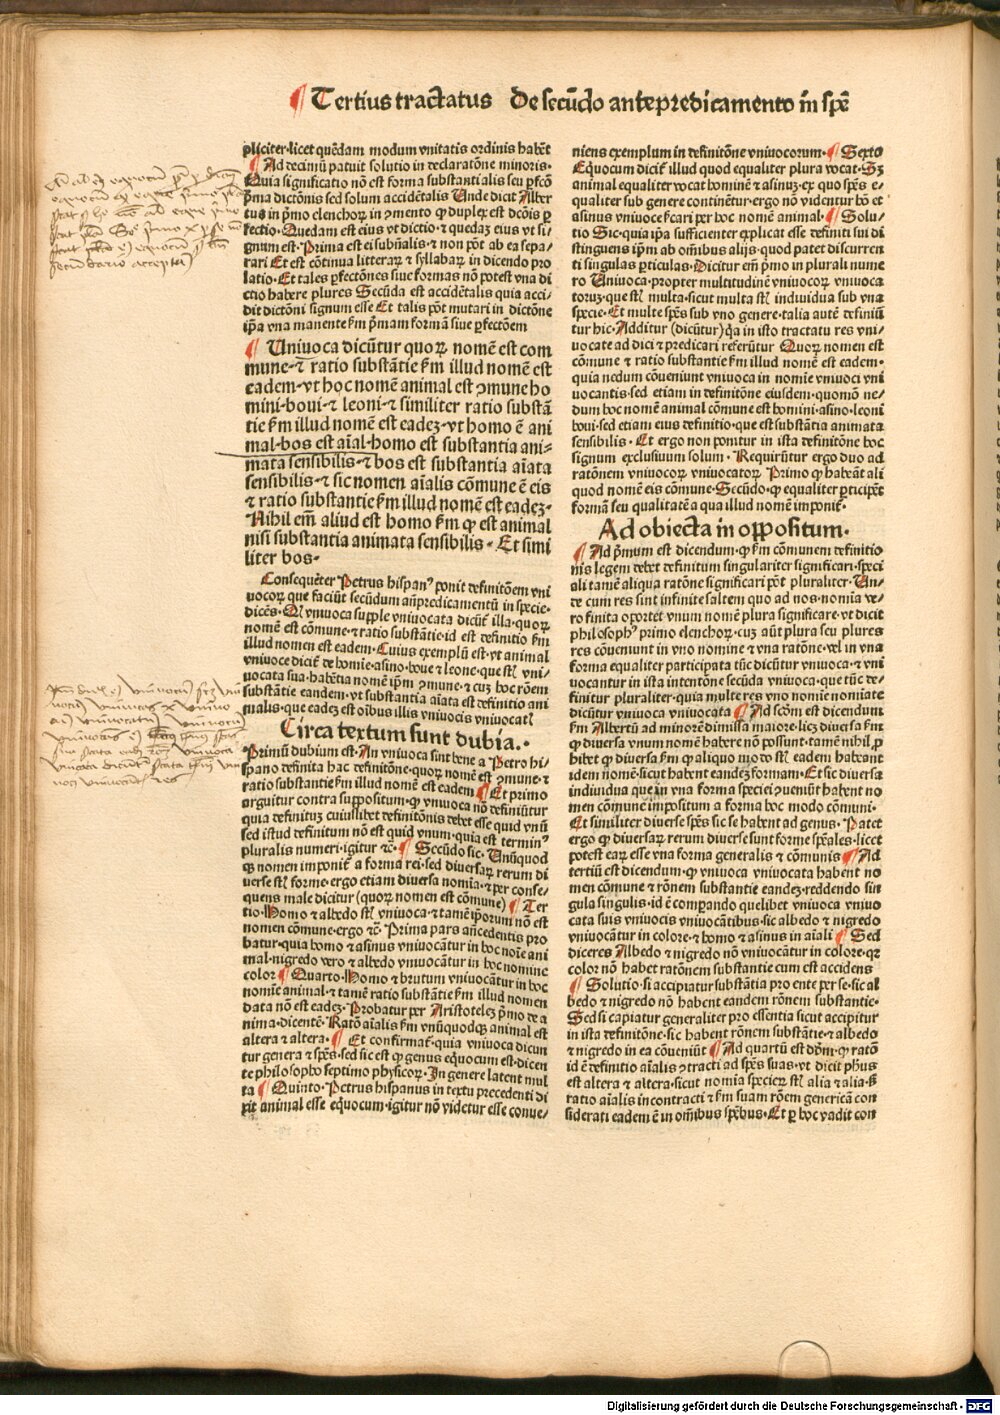 ¶ Tertius tractatus De secũdo antepredicamento in̄ spẽ
pliciter·licet quẽdam modum vnitatis ordinis habẽt
¶ Ad decimũ patuit solutio in declaratõne minoris·
Quia significatio nõ est forma substantialis seu ꝑfcõ
ṗma dictõnis sed solum accidẽtalis Unde dicit Alber
tus in ṗmo elenchoꝝ in ꝯmento ꝙ duplex est dcõis ꝑ
fectio·Quedam est eius vt dictio·⁊ quedaꝫ eius vt si-
gnum est·Prima est ei subñalis·⁊ non põt ab ea sepa-
rari Et est cõtinua litteraꝝ ⁊ syllabaꝝ in dicendo pro
latio·Et tales ꝑfectõnes siue formas nõ potest vna di
ctio habere plures Secũda est accidẽtalis quia acci-
dit dictõni signum esse Et talis põt mutari in dictõne
ip̃a vna manente ẜm ṗmam formã siue ꝑfectõem
¶ Uniuoca dicũtur quoꝝ nomẽ est com
mune·⁊ ratio substãtie ẜm illud nomẽ est
eadem·vt hoc nomẽ animal est ꝯmune ho
mini·boui·⁊ leoni·⁊ similiter ratio substã
tie ẜm illud nomẽ est eadeꝫ·vt homo ẽ ani
mal·bos est aĩal·homo est substantia ani-
mata sensibilis·⁊ bos est substantia aĩata
sensibilis·⁊ sic nomen aĩalis cõmune ẽ eis
⁊ ratio substantie ẜm illud nomẽ est eadeꝫ·
Nihil em̃ aliud est homo ẜm ꝙ est animal
nisi substantia animata sensibilis· Et simi
liter bos·
Consequẽter Petrus hispanꝰ ponit definitõem vni
uocoꝝ que faciũt secũdum añpredicamentũ in specie·
dicẽs·Qꝫ vniuoca supple vniuocata dicũt̃ illa·quoꝝ
nomẽ est cõmune·⁊ ratio substãtie·id est definitio ẜm
illud nomen est eadem·Cuius exemplũ est·vt animal
vniuoce dicit̃ de homie·asino·boue ⁊ leone·que st̃ vni-
uocata sua·habẽtia nomẽ ip̃m ꝯmune·⁊ cuꝫ hoc rõem
substãtie eandem·vt substantia aĩata est definitio ani
malis·que eadeꝫ est oĩbus illis vniuocis vniuocat̃
Circa textum sunt dubia.·
Primũ dubium est·An vniuoca sint bene a Petro hi-
spano definita hac definitõne·quoꝝ nomẽ est ꝯmune·⁊
ratio substantie ẜm illud nomẽ est eadem ¶ Et primo
arguitur contra suppositum·ꝙ vniuoca nõ definiũtur
quia definituꝫ cuiuslibet definitõnis debet esse quid vnũ
sed istud definitum nõ est quid vnum·quia est terminꝰ
pluralis numeri·igitur ⁊c̃·¶ Secũdo sic·Unũquod
qꝫ nomen imponit̃ a forma rei·sed diuersaꝝ rerum di
uerse st̃ forme·ergo etiam diuersa nomĩa·⁊ per conse-
quens male dicitur (quoꝝ nomen est cõmune) ¶ Ter
tio·Homo ⁊ albedo st̃ vniuoca·⁊ tamẽ ip̃orum nõ est
nomen cõmune·ergo ⁊c̃· Prima pars añcedentis pro
batur·quia homo ⁊ asinus vniuocãtur in hoc noĩe ani
mal·nigredo vero ⁊ albedo vniuocãtur in hoc nomine
color ¶ Quarto·Homo ⁊ brutum vniuocãtur in hoc
nomĩe animal·⁊ tamẽ ratio substãtie ẜm illud nomen
data nõ est eadeꝫ·Probatur per Aristotelẽ ṗmo de a
nima·dicentẽ·Ratõ aĩalis ẜm vnũquodqꝫ animal est
altera ⁊ altera·¶ Et confirmat̃·quia vniuoca dicun
tur genera ⁊ spẽs·sed sic est ꝙ genus equocum est·dicen
te philosopho septimo physicoꝝ·In genere latent mul
ta ¶ Quinto·Petrus hispanus in textu precedenti di
xit animal esse equocum·igitur nõ videtur esse conue-
niens exemplum in definitõne vniuocorum·¶ Sexto
Equocum dicit̃ illud quod equaliter plura vocat·Sꝫ
animal equaliter vocat hominẽ ⁊ asinuꝫ·ex quo spẽs e-
qualiter sub genere continẽtur·ergo nõ videntur hõ et
asinus vniuoce ẜcari per hoc nomẽ animal·¶ Solu-
tio Sic·quia ip̃a sufficienter explicat esse definiti sui di
stinguens ip̃m ab om̃ibus alijs·quod patet discurren
ti singulas ꝑticulas·Dicitur em̃ ṗmo in plurali nume
ro Uniuoca·propter multitudinẽ vniuocoꝝ vniuoca
toruꝫ·que st̃ multa·sicut multa st̃ indiuidua sub vna
specie·Et multe spẽs sub vno genere·talia autẽ definiũ
tur hic·Additur (dicũtur)q̃a in isto tractatu res vni-
uocate ad dici ⁊ predicari referũtur Quoꝝ nomen est
cõmune ⁊ ratio substantie ẜm illud nomen est eadem·
quia nedum cõueniunt vniuoca in nomĩe vniuoci vni
uocantis·sed etiam in definitõne eiusdem·quomõ ne-
dum hoc nomẽ animal cõmune est homini·asino·leoni
boui·sed etiam eius definitio·que est substãtia animata
sensibilis· Et ergo non ponitur in ista definitõne hoc
signum exclusiuum solum· Requirũtur ergo duo ad
ratõnem vniuocoꝝ vniuocatoꝝ Primo ꝙ habeãt ali
quod nomẽ eis cõmune·Secũdo·ꝙ equaliter ꝑticipẽt
formã seu qualitatẽ a qua illud nomẽ imponit̃·
Ad obiecta in oppositum·
¶ Ad ṗmum est dicendum·ꝙ ẜm cõmunem definitio
nis legem debet definitum singulariter significari·speci
ali tamẽ aliqua ratõne significari põt pluraliter·Un-
de cum res sint infinite saltem quo ad nos·nomĩa ve-
ro finita oportet vnum nomẽ plura significare·vt dicit
philosophꝰ primo elenchoꝝ·cuꝫ aũt plura seu plures
res cõueniunt in vno nomĩe ⁊ vna ratõne·vel in vna
forma equaliter participata tũc dicũtur vniuoca·⁊ vni
uocantur in ista intentõne secũda vniuoca·que tũc de-
finitur pluraliter·quia multe res vno nomĩe nomĩate
dicũtur vniuoca vniuocata ¶ Ad scõm est dicendum
ẜm Albertũ ad minorẽ dimissa maiore·licꝫ diuersa ẜm
ꝙ diuersa vnum nomẽ habere nõ possunt·tamẽ nihil ꝓ
hibet ꝙ diuersa ẜm ꝙ aliquo modo st̃ eadem habeant
idem nomẽ·sicut habent eandeꝫ formam·Et sic diuersa
indiuidua que in vna forma speciei ꝯueniũt habent no
men cõmune impositum a forma hoc modo cõmuni·
Et similiter diuerse spẽs sic se habent ad genus· Patet
ergo ꝙ diuersaꝝ rerum diuerse sunt forme spẽales·licet
potest eaꝝ esse vna forma generalis ⁊ cõmunis ¶ Ad
tertiũ est dicendum·ꝙ vniuoca vniuocata habent no
men cõmune ⁊ rõnem substantie eandeꝫ·reddendo sin
gula singulis·id ẽ compando quelibet vniuoca vniuo
cata suis vniuocis vniuocãtibus·sic albedo ⁊ nigredo
vniuocãtur in colore·⁊ homo ⁊ asinus in aĩali ¶ Sed
diceres Albedo ⁊ nigredo nõ vniuocãtur in colore·qꝛ
color nõ habet ratõnem substantie cum est accidens
¶ Solutio·si accipiatur substãtia pro ente per se·sic al
bedo ⁊ nigredo nõ habent eandem rõnem substantie·
Sed si capiatur generaliter pro essentia sicut accipitur
in ista definitõne·sic habent rõnem substãtie·⁊ albedo
⁊ nigredo in ea cõueniũt ¶ Ad quartũ est dõm·ꝙ ratõ
id ẽ definitio aĩalis ꝯtracti ad spẽs suas·vt dicit ph̃us
est altera ⁊ altera·sicut nomĩa specieꝝ st̃ alia ⁊ alia·ẜ
ratio aĩalis incontracti ⁊ ẜm suam rõem genericã con
siderati eadem ẽ in om̃ibus spẽbus·Et ꝑ hoc vadit con
Digitalisierung gefördert durch die Deutsche Forschungsgemeinschaft · DFG